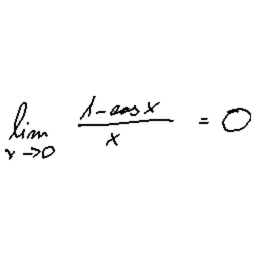 lim x→0 (1-cos x)/x = 0